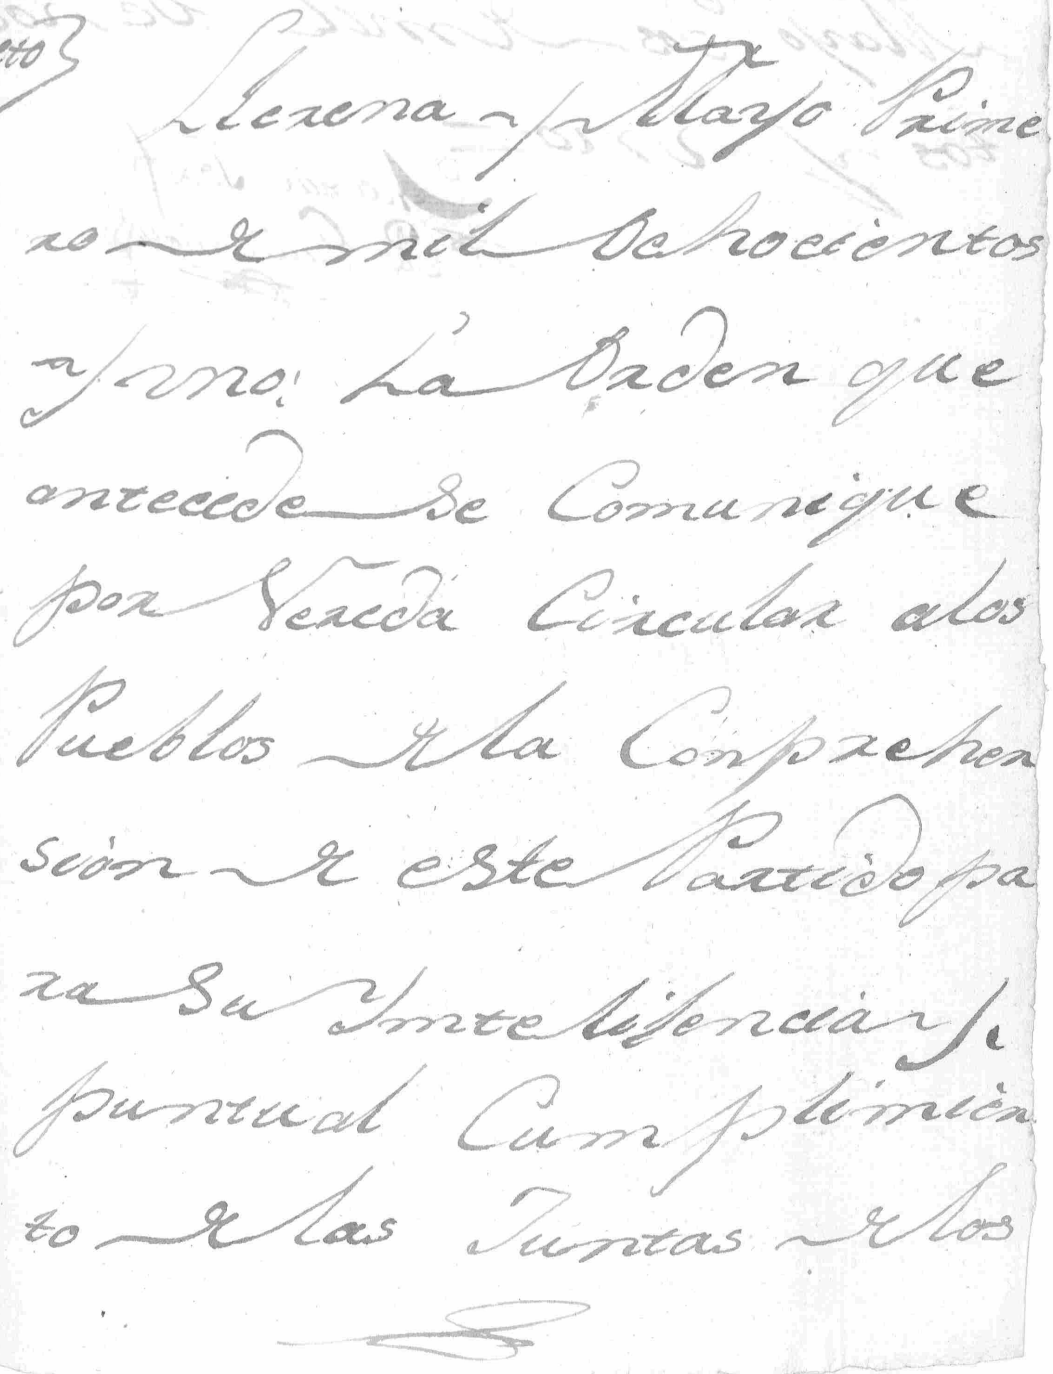 eto
Llerena y Mayo Prime
ro de mil Ochocientos
y uno: La Orden que
antecede Se Comunique
por Vereda Circular alos
Pueblos de la Conprehen
sión de este Partido pa
ra Su Inteligencia y
puntual Cumplimien
to de las Juntas de los